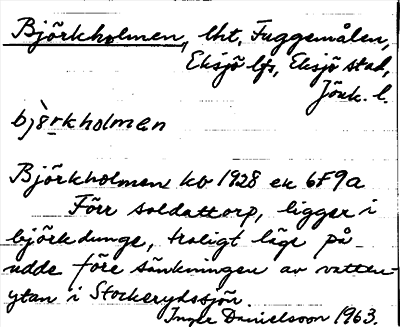 Björkholmen, lht, Fuggemålen,
Eksjö lfs, Eksjö stad,
Jönk. l.
bjò̀rkholmen
Björkholmen kb 1928 ek 6F9a
Förr soldattorp, ligger i
björkdunge, troligt läge på
udde före sänkningen av vatten-
ytan i Stockerydssjön.
Inger Danielsson 1963.